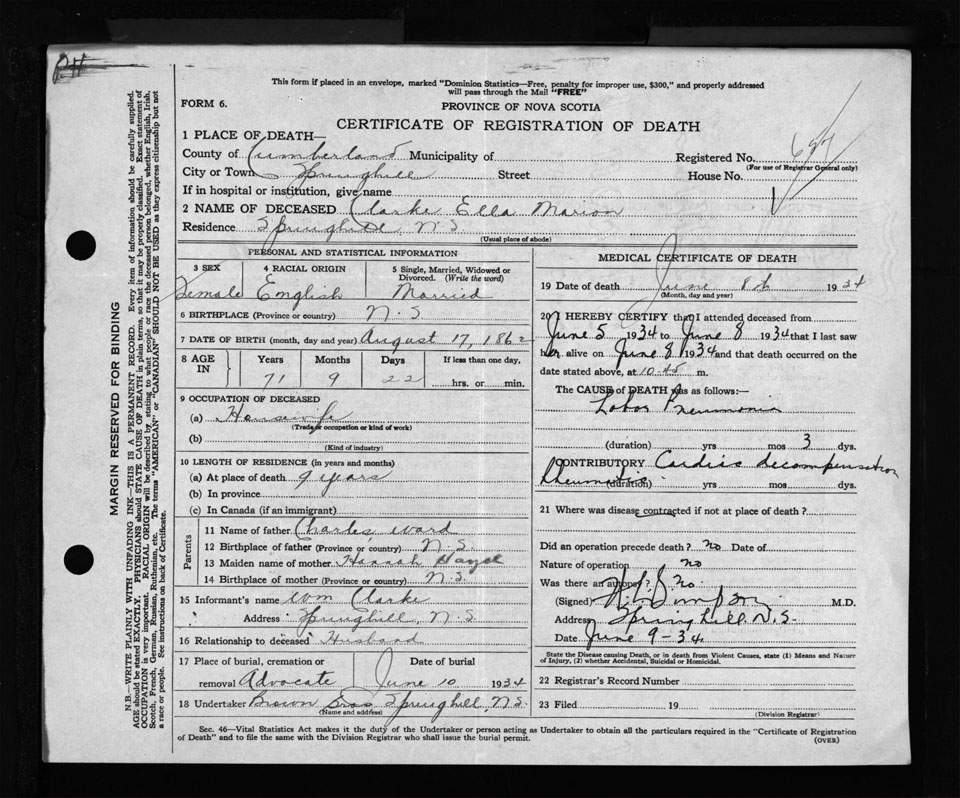 This form if placed in an envelope, marked "Dominion Statistics—Free, penalty for improper use, $300," and properly addressed
will pass through the Mail "FREE"
FORM 6.
PROVINCE OF NOVA SCOTIA
CERTIFICATE OF REGISTRATION OF DEATH
1 PLACE OF DEATH—
County of Cumberland Municipality of
Registered No.
(For use of Registrar General only)
City or Town Springhill Street House No.
If in hospital or institution, give name
2 NAME OF DECEASED Clarke Ella Marion
Residence Springhill, N.S.
(Usual place of abode)
PERSONAL AND STATISTICAL INFORMATION
3 SEX 4 RACIAL ORIGIN 5 Single, Married, Widowed or Divorced. (Write the word)
Female English Married
6 BIRTHPLACE (Province or country) N.S.
7 DATE OF BIRTH (month, day and year) August 17, 1862
8 AGE IN Years Months Days If less than one day,
71 9 22 hrs. or min.
9 OCCUPATION OF DECEASED
(a) Housewife
(Trade or occupation or kind of work)
(b)
(Kind of industry)
10 LENGTH OF RESIDENCE (in years and months)
(a) At place of death 9 years
(b) In province
(c) In Canada (if an immigrant)
Parents
11 Name of father Charles Ward
12 Birthplace of father (Province or country) N.S.
13 Maiden name of mother Hannah
14 Birthplace of mother (Province or country) N.S.
15 Informant's name Wm Clarke
Address Springhill, N.S.
16 Relationship to deceased Husband
17 Place of burial, cremation or removal Advocate
Date of burial
June 10 1934
18 Undertaker Brown Bros Springhill, N.S.
(Name and address)
MEDICAL CERTIFICATE OF DEATH
19 Date of death June 8th 1934
(Month, day and year)
20 I HEREBY CERTIFY that I attended deceased from
June 5 1934 to June 8 1934 that I last saw
her alive on June 8 1934 and that death occurred on the
date stated above, at 10.45 m.
The CAUSE of DEATH was as follows:—
Lobar Pneumonia
(duration) yrs mos 3 dys.
CONTRIBUTORY Cardiac decompensation
Rheumatic
(duration) yrs mos dys.
21 Where was disease contracted if not at place of death?
Did an operation precede death? No Date of
Nature of operation No
Was there an autopsy? No.
(Signed) Simpson M.D.
Address Springhill N.S.
Date June 9-34
State the Disease causing Death, or in death from Violent Causes, state (1) Means and Nature
of Injury, (2) whether Accidental, Suicidal or Homicidal.
22 Registrar's Record Number
23 Filed 19
(Division Registrar)
Sec. 46—Vital Statistics Act makes it the duty of the Undertaker or person acting as Undertaker to obtain all the particulars required in the "Certificate of Registration
of Death" and to file the same with the Division Registrar who shall issue the burial permit.
(OVER)
MARGIN RESERVED FOR BINDING
N.B.—WRITE PLAINLY WITH UNFADING INK—THIS IS A PERMANENT RECORD. Every item of information should be carefully supplied.
AGE should be stated EXACTLY. PHYSICIANS should STATE CAUSE OF DEATH in plain terms, so that it may be properly classified. Exact statement of
OCCUPATION is very important. RACIAL ORIGIN will be described by stating to what people or race the deceased person belonged, whether English, Irish,
Scotch, French, German, Russian, Ruthenian, etc. The terms "AMERICAN" or "CANADIAN" SHOULD NOT BE USED as they express citizenship but not
a race or people. See instructions on back of Certificate.